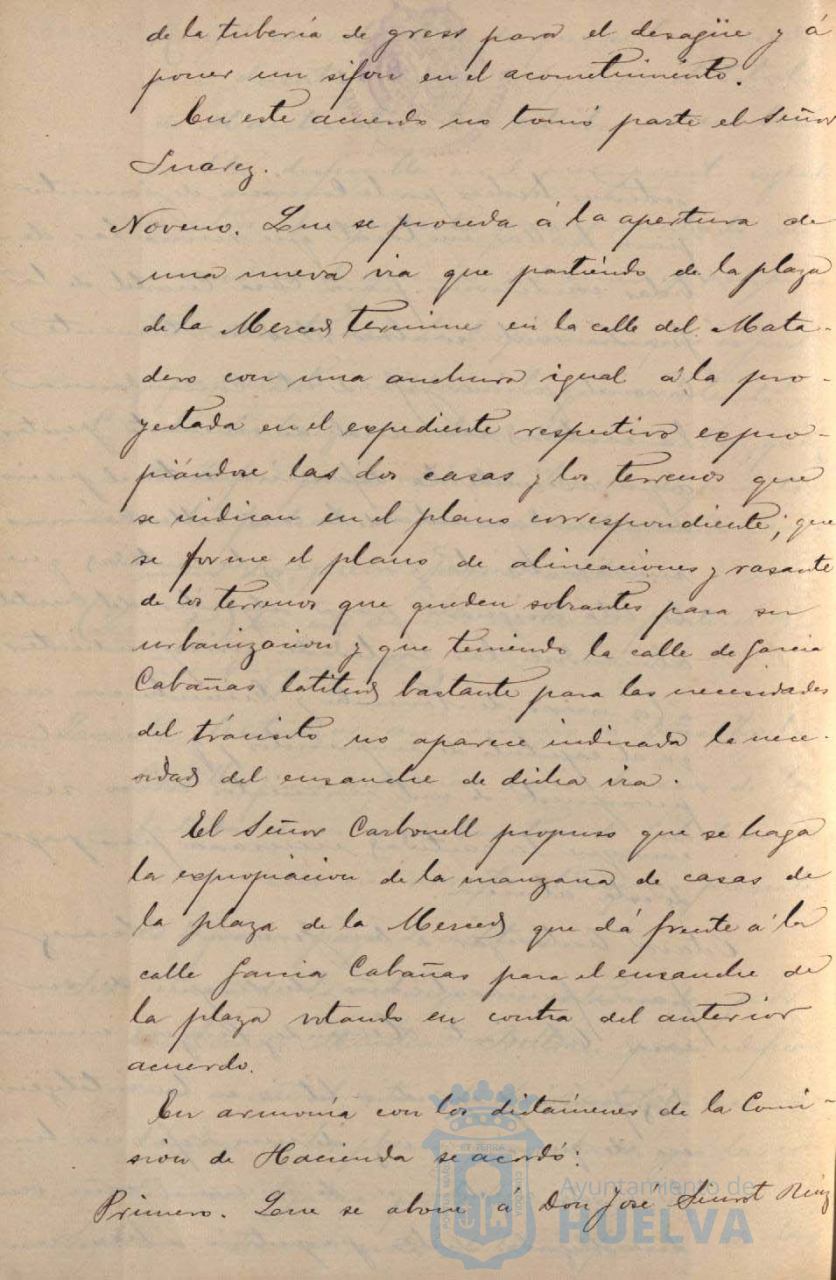 de la tubería de gress para el desagüe y á
poner un sifon en el acometimiento.
En este acuerdo no tomó parte el Señor
Suarez.
Noveno. Que se proceda á la apertura de
una nueva via que partiendo de la plaza
de la Merced termine en la calle del Mata-
dero con una anchura igual á la pro-
yectada en el expediente respectivo expro-
piándose las dos casas y los terrenos que
se indican en el plano correspondiente; que
se forme el plano de alineaciones y rasante
de los terrenos que queden sobrantes para su
urbanizacion y que teniendo la calle de Garcia
Cabañas latitud bastante para las necesidades
del tránsito no aparece indicada la nece-
sidad del ensanche de dicha via.
El Señor Carbonell propuso que se haga
la expropiacion de la manzana de casas de
la plaza de la Merced que dá frente á la
calle Garcia Cabañas para el ensanche de
la plaza votando en contra del anterior
acuerdo.
En armonía con los dictámenes de la Comi-
sion de Hacienda se acordó:
Primero. Que se abone á Don José Ruiz
Ayuntamiento de
HUELVA